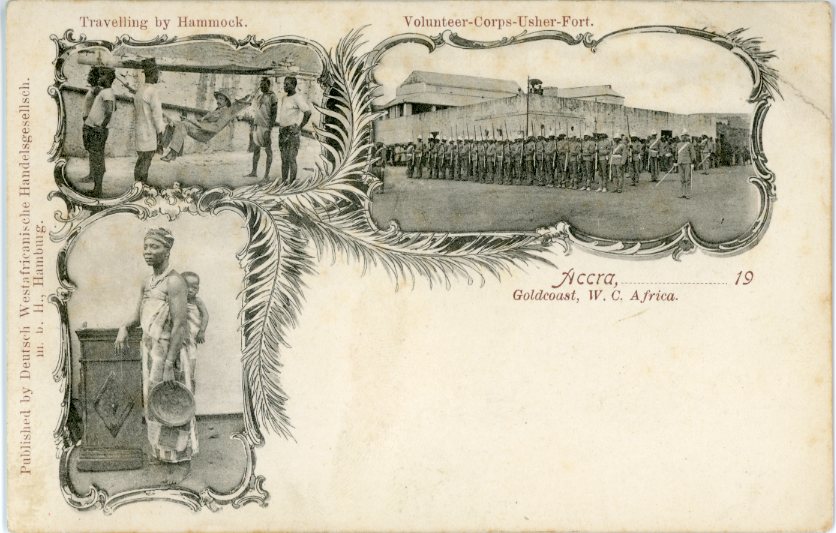 Travelling by Hammock.
Volunteer-Corps-Usher-Fort.
Published by Deutsch Westafricanische Handelsgesellsch.
m. b. H., Hamburg.
Accra, 19
Goldcoast, W. C. Africa.